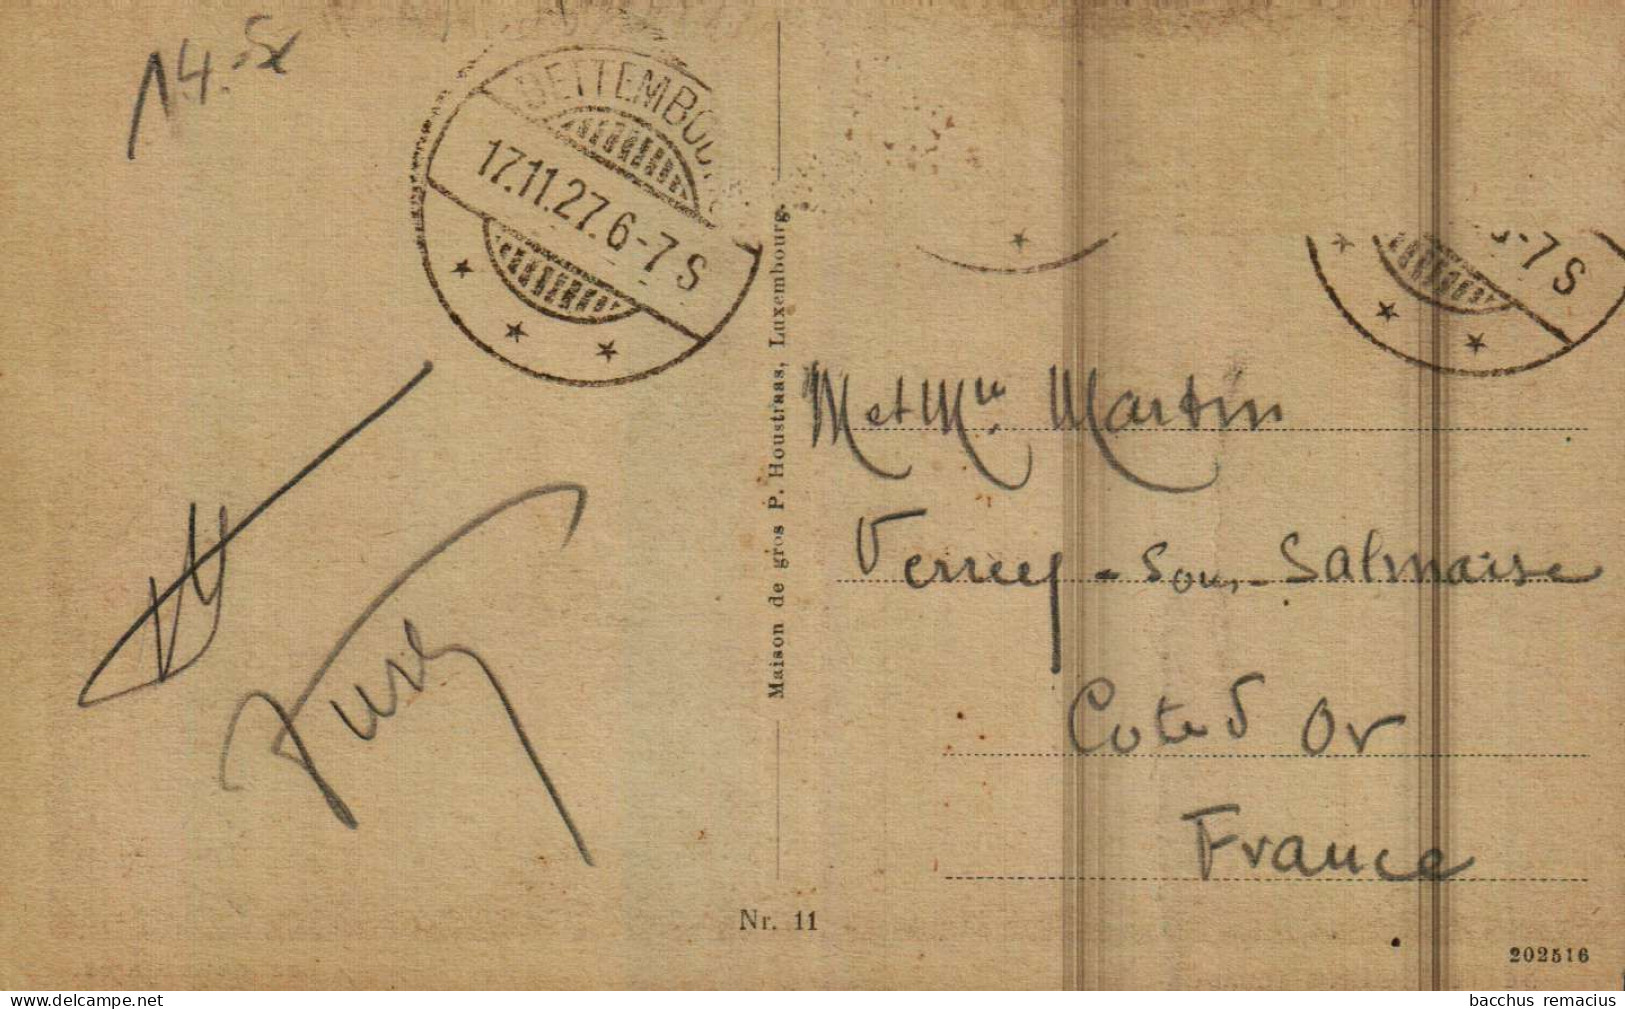 14.
BETTEMBOU
17.11.27.6-7 S
-7 S
Maison de gros P. Houstraas, Luxembourg.
M et Mlle Martin
Verrey-sous-Salmaise
Cote d Or
France
Nr. 11
202516
www.delcampe.net
bacchus remacius